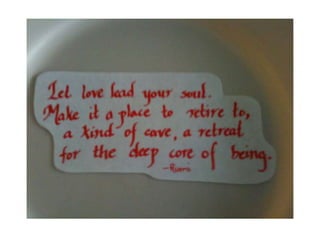 Let love lead your soul.
Make it a place to retire to,
a kind of cave, a retreat
for the deep core of being.